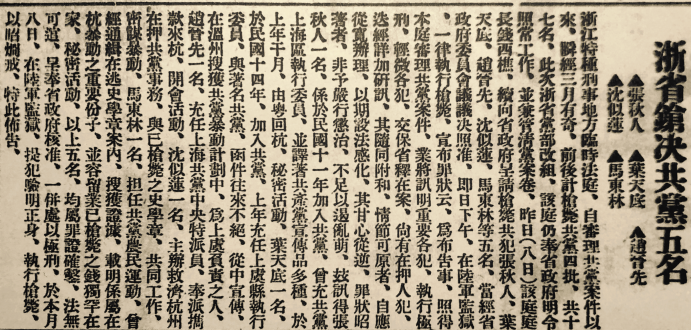 浙省鎗决共黨五名
▲張秋人 ▲葉天底 ▲趙晉先
▲沈似蓮 ▲馬東林
浙江特種刑事地方臨時法庭、自審理共黨案件以
來、瞬經三月有奇、前後計槍斃共黨四批、共十
七名、此次浙省黨部改組、該庭仍奉省政府明令
照常工作、並兼管清黨案卷、昨日(八日)該庭庭
長錢西樵、續向省政府呈請槍斃共犯張秋人、葉
天底、趙晉先、沈似蓮、馬東林等五名、當經省
政府委員會議議决照准、即日下午、在陸軍監獄
、一律執行槍斃、宣布罪狀云、爲布告事、照得
本庭審理共黨案件、業將訊明重要各犯、執行極
刑、輕微各犯、交保省釋在案、尚有在押人犯、
迭經詳加研訊、其隨同附和、情節可原者、自應
從寬辦理、以期設法感化、其甘心從逆、罪狀昭
著者、非予嚴行懲治、不足以遏亂萌、茲訊得張
秋人一名、係於民國十一年加入共黨、曾充共黨
上海區執行委員、並譯著共產黨宣傳品多種、於
上年十月、由粵回杭、秘密活動、葉天底一名、
於民國十四年、加入共黨、上年充任上虞縣執行
委員、與著名共黨、函件往來不絕、從中宣傳、
在溫州搜獲共黨暴動計劃中、爲上虞負責之人、
趙晉先一名、充任上海共黨中央特派員、奉派攜
欵來杭、開會活動、沈似蓮一名、主辦救濟杭州
在押共黨事務、與已槍斃之史學章、共同工作、
密謀暴動、馬東林一名、担任共黨農民運動、曾
經通緝在逃史學章案內、搜獲證據、載明係屬在
杭暴動之重要份子、並容留業已槍斃之錢獨罕在
家、秘密活動、以上五名、均屬罪證確鑿、法無
可逭、呈奉省政府核准、一併處以極刑、於本月
八日、在陸軍監獄、提犯驗明正身、執行槍斃、
以昭烱戒、特此佈告、